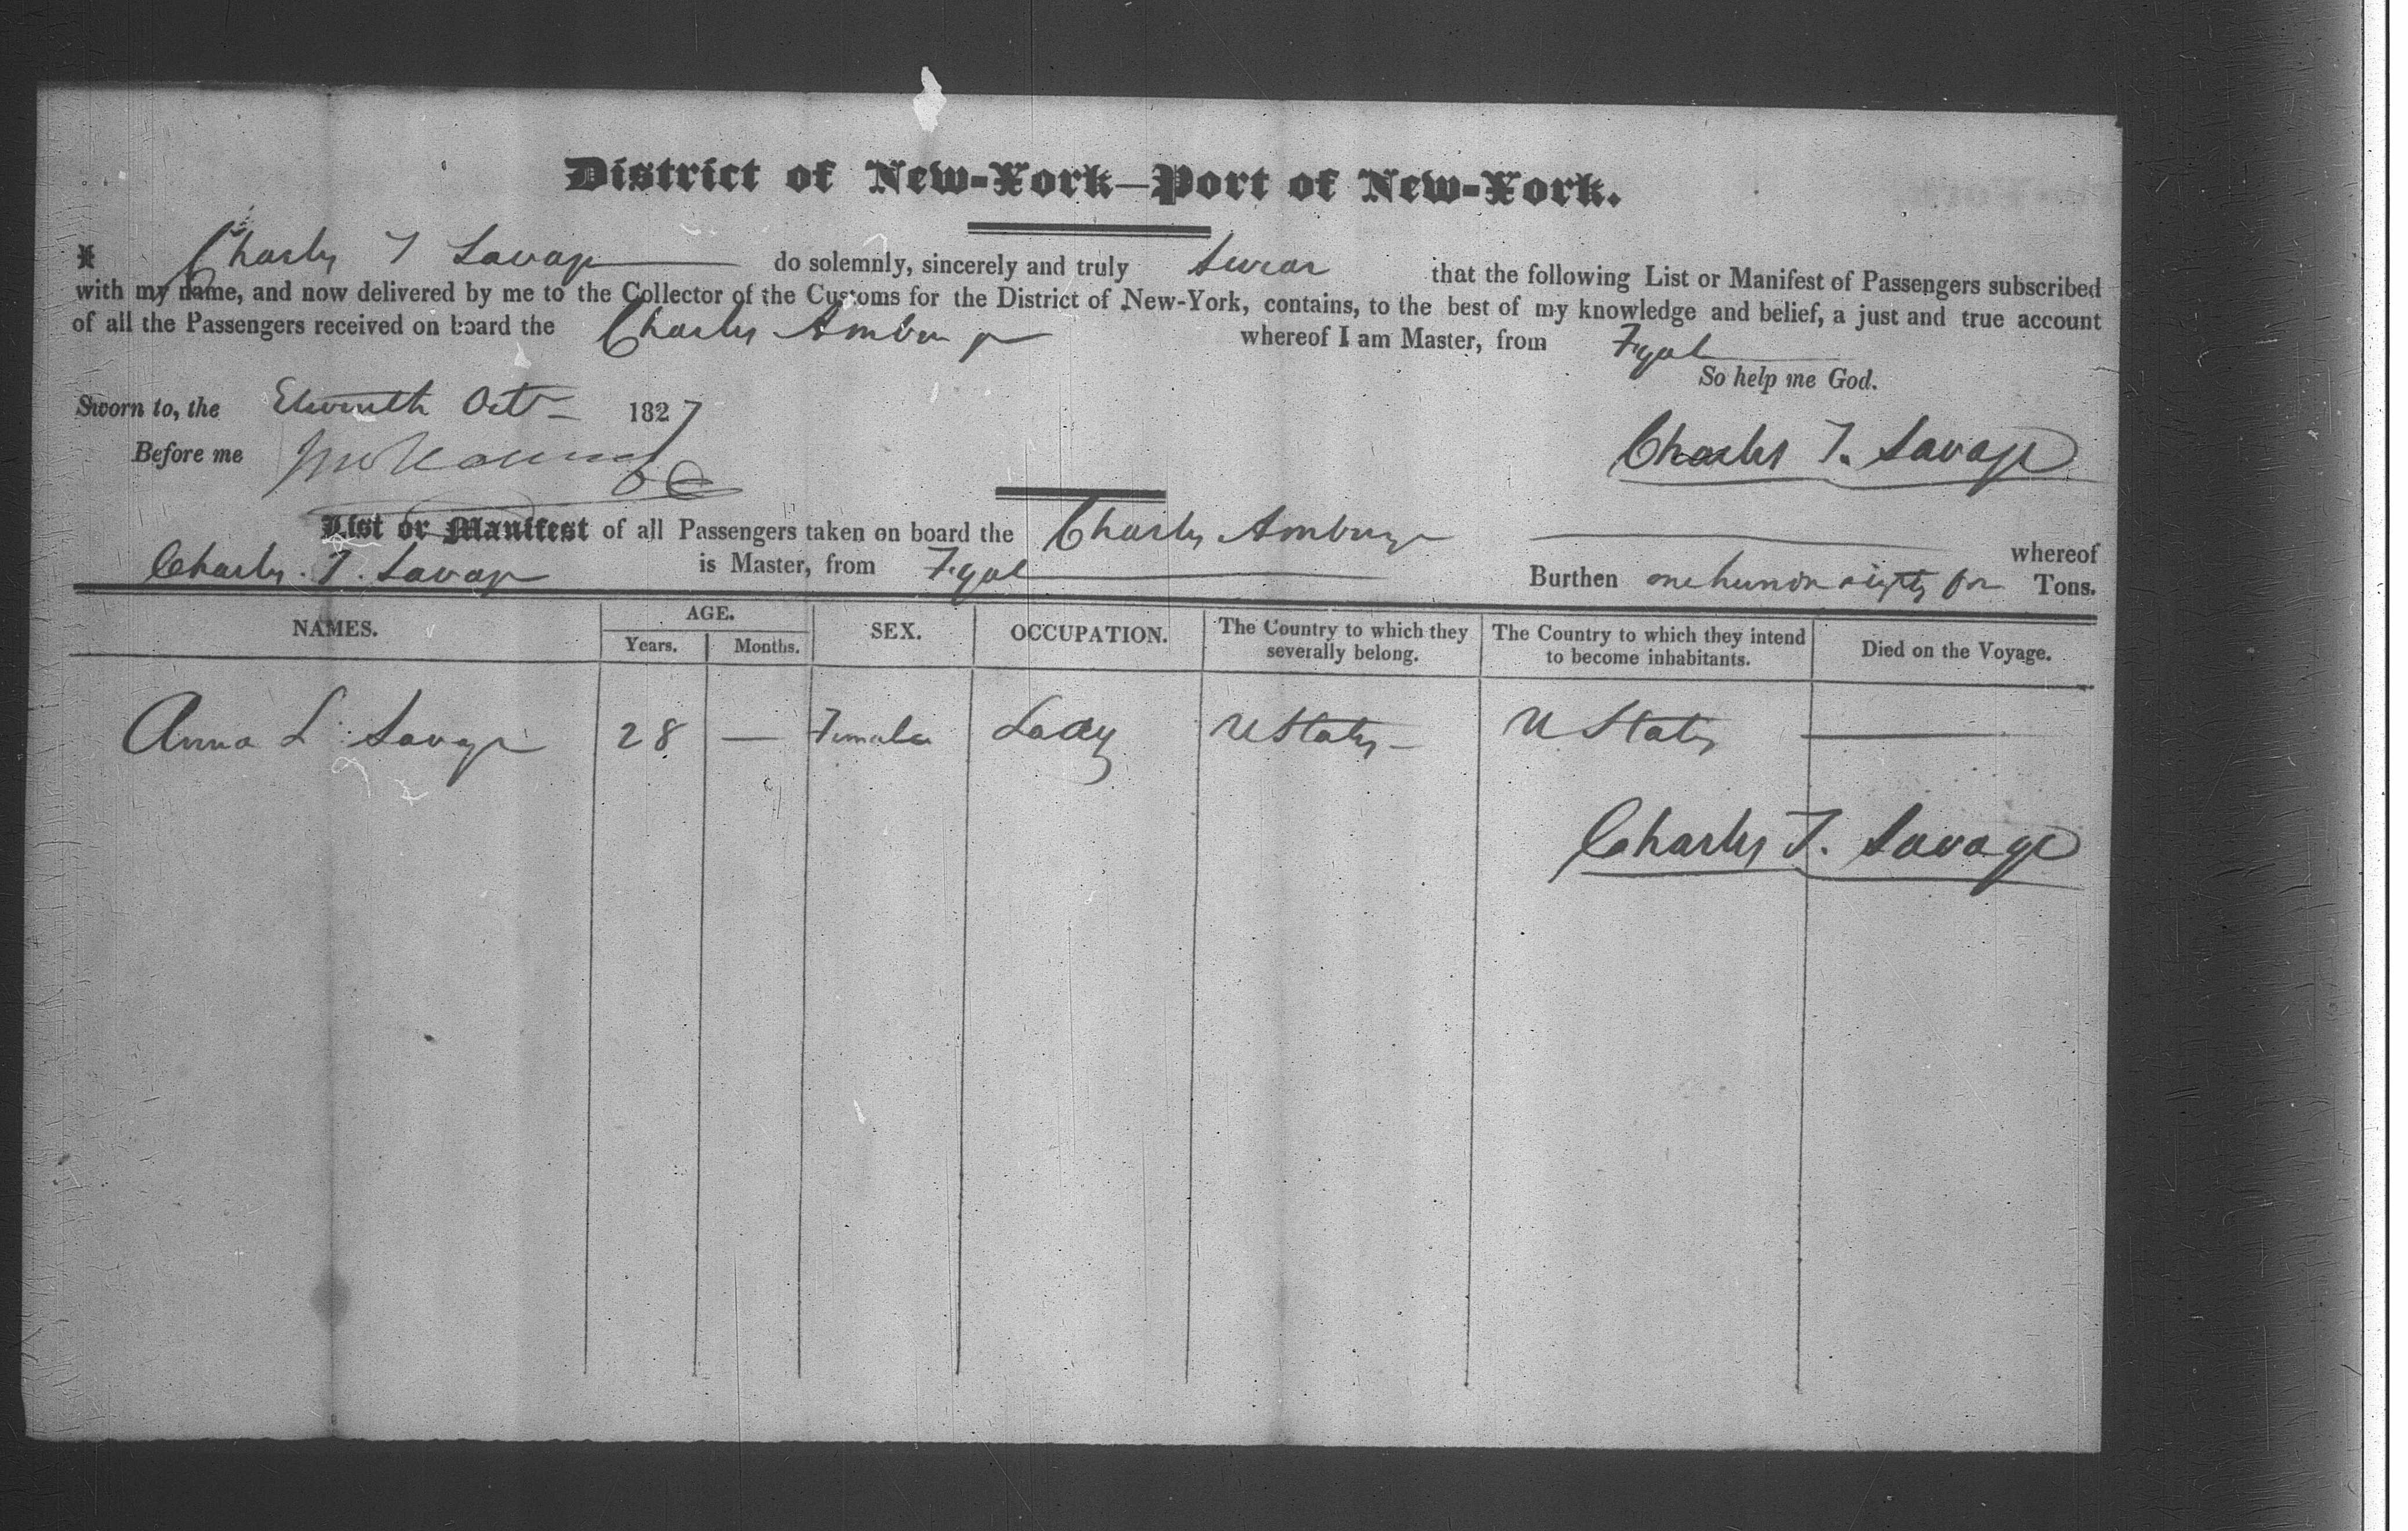 District of New-York—Port of New-York.
I Charles T Savage do solemnly, sincerely and truly Swear that the following List or Manifest of Passengers subscribed
with my name, and now delivered by me to the Collector of the Customs for the District of New-York, contains, to the best of my knowledge and belief, a just and true account
of all the Passengers received on board the Charles whereof I am Master, from
So help me God.
Sworn to, the Eleventh Oct 1827
Charles T. Savage
Before me
List or Manifest of all Passengers taken on board the Charles whereof
Charles. T. Savage is Master, from Burthen one hundr Tons.
NAMES. AGE. Years. Months. SEX. OCCUPATION. The Country to which they severally belong. The Country to which they intend to become inhabitants. Died on the Voyage.
Anna L. Savage 28 — Female Lady U States — U States —
Charles T. Savage